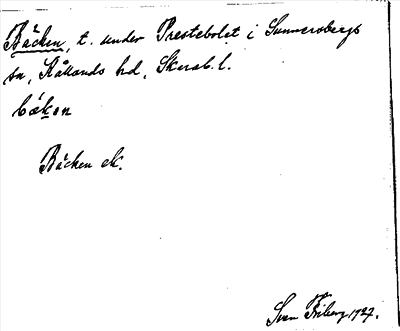 Bäcken, t. under Prestebolet i Sunnersbergs
sn, Kållands hd, Skarab. l.
bä́kɘn
Bäcken ek.
Sven Friberg 1927.